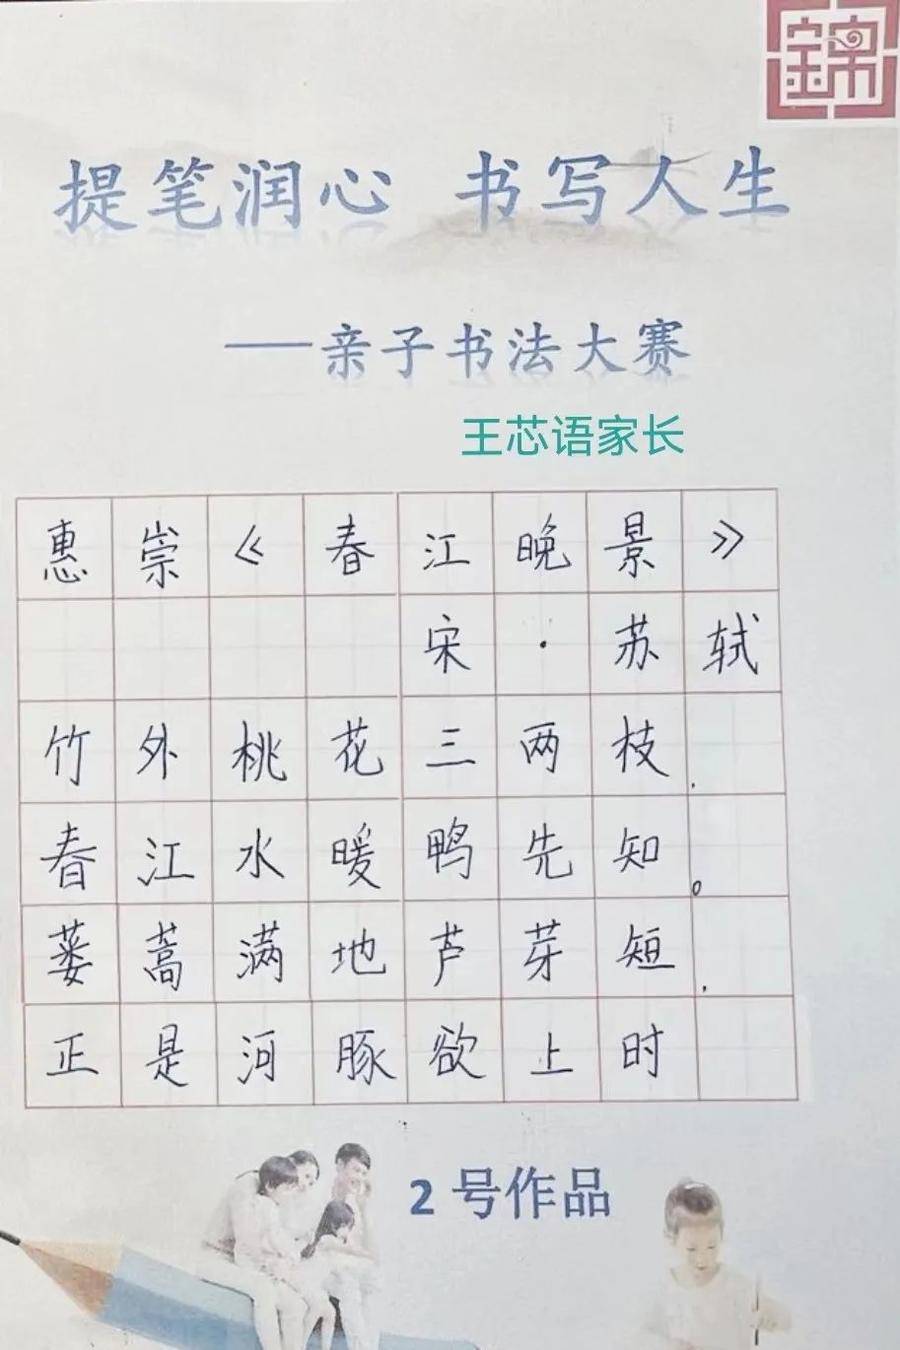 錦
提笔润心 书写人生
——亲子书法大赛
王芯语家长
惠崇《春江晚景》
宋·苏轼
竹外桃花三两枝.
春江水暖鸭先知。
蒌蒿满地芦芽短.
正是河豚欲上时
2号作品